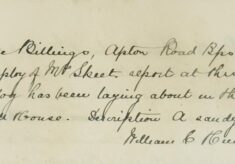 Billings, Apton Road Bps
ploy of Mr Skeet, report at
has been laying about in th
House. Description A sandy
William C